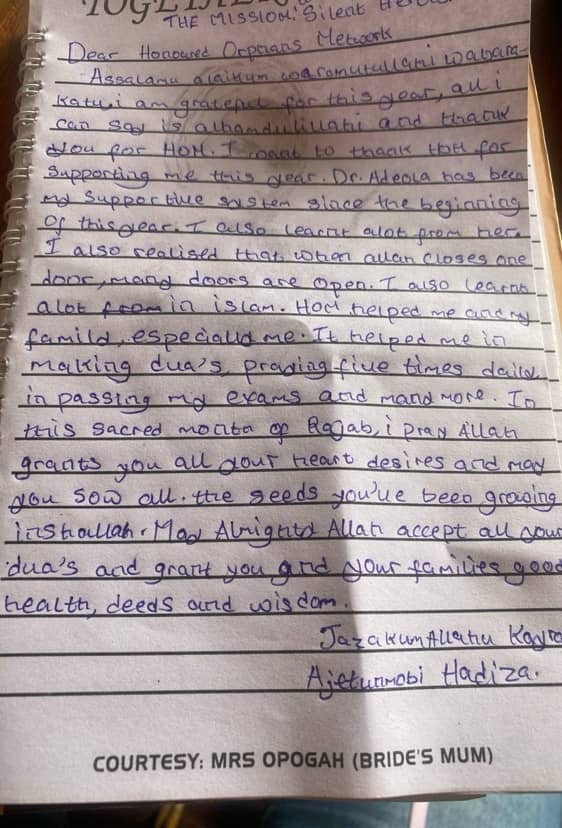 TOGETHER
THE MISSION: Silent Hero
Dear Honoured Orphans Network
Assalamu alaikum waramatullahi wabara-
katu, i am grateful for this year, all i
can say is alhamdulillahi and thank
you for HOM. I want to thank HOM for
supporting me this year. Dr. Adeola has been
my supportive system since the beginning
of this year. I also learnt alot from her.
I also realised that when allah closes one
door, many doors are open. I also learnt
alot from in islam. HOM helped me and my
family, especially me. It helped me in
making dua's, praying five times daily
in passing my exams and many more. In
this sacred month of Rajab, i pray Allah
grants you all your heart desires and may
you sow all the seeds you've been growing
inshallah. May Almighty Allah accept all your
dua's and grant you and your families good
health, deeds and wisdom.
JazakumAllahu Kayra
Ajetunmobi Hadiza.
COURTESY: MRS OPOGAH (BRIDE'S MUM)